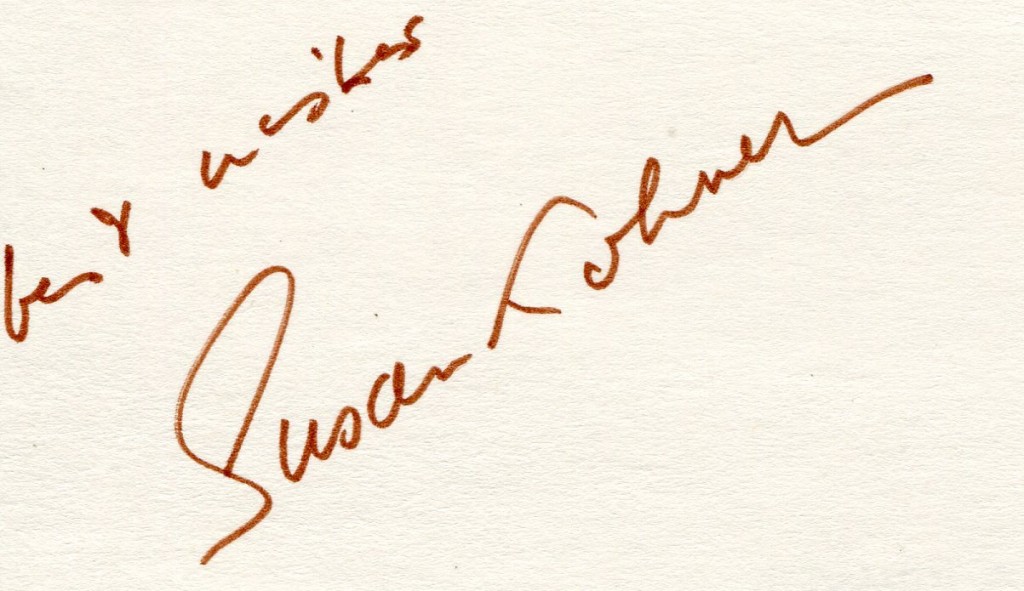 best wishes
Susan Kohner